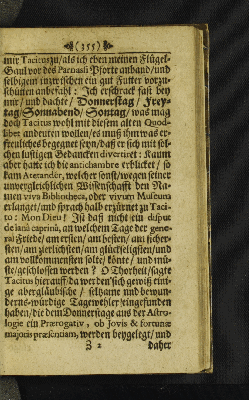 (355)
mir Tacitus zu/als ich eben meinen Flügel-
Gaul vor des Parnassi Pforte anband/und
selbigem inzwischen ein gut Futter vorzu-
schütten anbefahl: Ich erschrack fast bey
mir/und dachte/ Donnerstag/ Frey-
tag/ Sonnabend/ Sontag/ was mag
doch Tacitus wohl mit diesem alten Quod-
libet andeuten wollen/es muß ihm was er-
freuliches begegnet seyn/daß er sich mit sol-
chen lustigen Gedancken divertiret: Kaum
aber hatte ich die antichambre erblicket/ so
kam Ateander, welcher sonst/wegen seiner
unvergleichlichen Wissenschafft den Na-
men viva Bibliotheca, oder vivum Musæum
erlanget/und sprach halb erzürnet zu Taci-
to: Mon Dieu! Ist daß nicht ein disput
de lana caprina, an welchem Tage der gene-
ral Friede/ am ersten/ am besten/ am sicher-
sten/am zierlichsten/am glückseligsten/und
am vollkommensten solte/ könte/ und mü-
ste/geschlossen werden? O Thorheit/sagte
Tacitus hierauff/da werden sich gewiß eini-
ge abergläubische/ seltzame und bewun-
derns-würdige Tagewehler eingefunden
haben/die dem Donnerstage aus der Astro-
logie ein Prærogativ, ob Jovis & fortunæ
majoris præsentiam, werden beygelegt/und
Z 2
daher